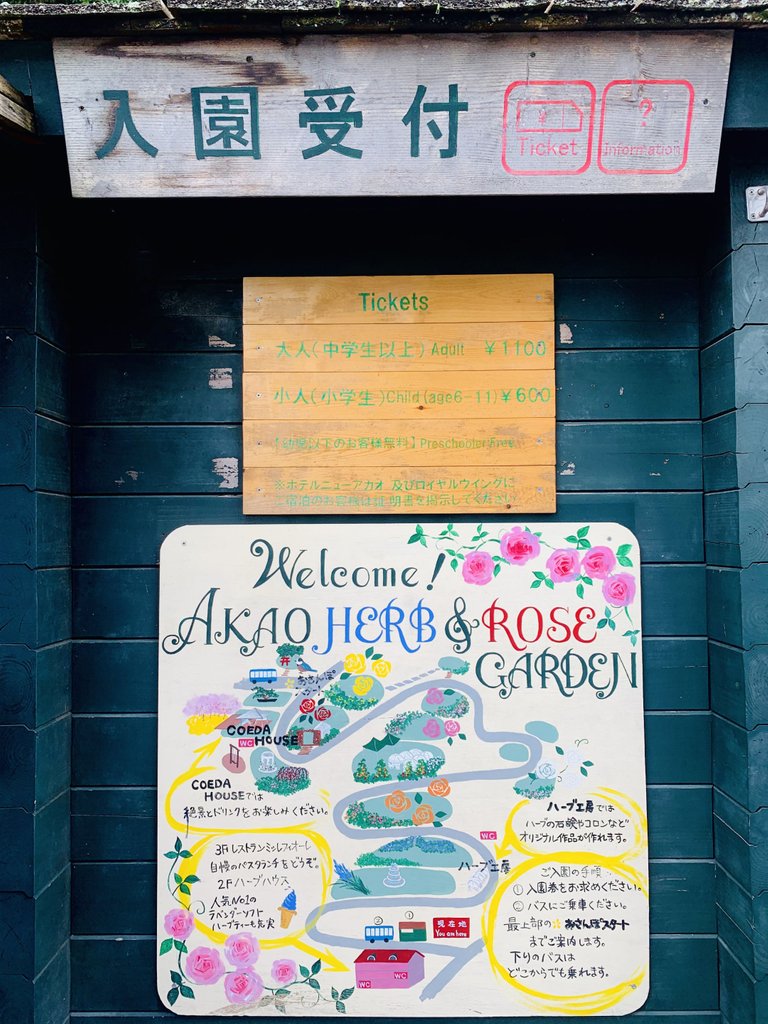 入園受付
Ticket
Information
Tickets
大人(中学生以上) Adult ¥1100
小人(小学生)Child(age6-11)¥600
【幼児以下のお客様無料】Preschooler Free
※ホテルニューアカオ 及びロイヤルウイングに
ご宿泊のお客様は証明書を掲示してください
Welcome!
AKAO HERB & ROSE
GARDEN
あさんぽ
COEDA
HOUSE
WC
COEDA
HOUSEでは
絶景とドリンクをお楽しみください。
ハーブ工房では
ハーブの石鹸やコロンなど
オリジナル作品が作れます。
WC
ハーブ工房
3Fレストランミッレフィオーレ
自慢のパスタランチをどうぞ。
2Fハーブハウス
人気No1の
ラベンダーソフト
ハーブティーも充実
ご入園の手順
①入園券をお求めください。
②バスにご乗車ください。
最上部の☆あさんぽスタート
までご案内します。
下りのバスは
どこからでも乗れます。
②
①
現在地
You are here
WC
WC